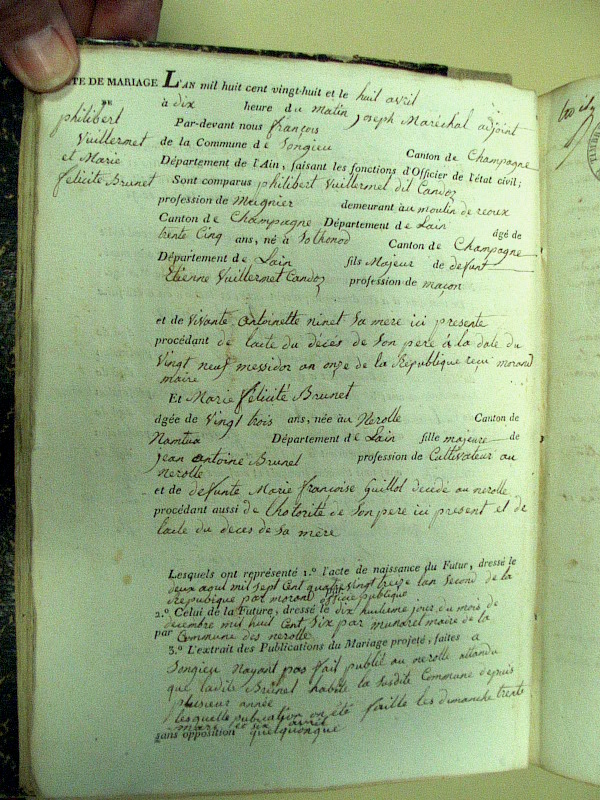 TE DE MARIAGE L'AN mil huit cent vingt-huit et le huit avril
DE
à dix heure du matin
Par-devant nous françois Joseph Maréchal adjoint
philibert
Vuillermet
et Marie
felicite Brunet
de la Commune de Songieu Canton de Champagne
Département de l'Ain, faisant les fonctions d'Officier de l'état civil;
Sont comparus philibert Vuillermet dit Candoz
profession de Meignier demeurant àu moulin de reoux
Canton de Champagne Département de Lain âgé de
trente Cinq ans, né à Sothonod Canton de Champagne
Département de Lain fils Majeur de defunt
Etienne Vuillermet Candoz profession de maçon
et de Vivante antoinette ninet Sa mere ici presente
procédant de lacte du décés de Son pere à la date du
Vingt neuf messidor an onze de la République recu morand
maire
Et Marie félicité Brunet
âgée de Vingt trois ans, née àu Nerolle Canton de
Nantua Département de Lain fille majeure de
Jean antoine Brunet profession de Cultivateur au
nerolle
et de defunte Marie françoise Guillot décédé au nerolle
procédant aussi de Lhotorité de Son pere ici present et de
lacte du deces de Sa mère
Lesquels ont représenté 1.º l'acte de naissance du Futur, dressé le
mil Sept Cent quatre vingt treize lan Second de la
Republique par morand officié publique
2.º Celui de la Future, dressé le dix huitieme jour du mois de
decembre mil huit Cent Six par maire de la
par Commune des nerolle
3.º L'extrait des Publications du Mariage projeté, faites à
Songieu Nayant pas fait publié au nerolle attandu
que ladite Brunet habite la Susdite Commune depuis
plusieur année
lesquelle publication on été faitte les dimanche trente
mars et six avril
sans opposition quelquonque